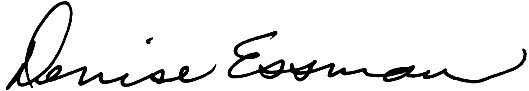 Denise Essman